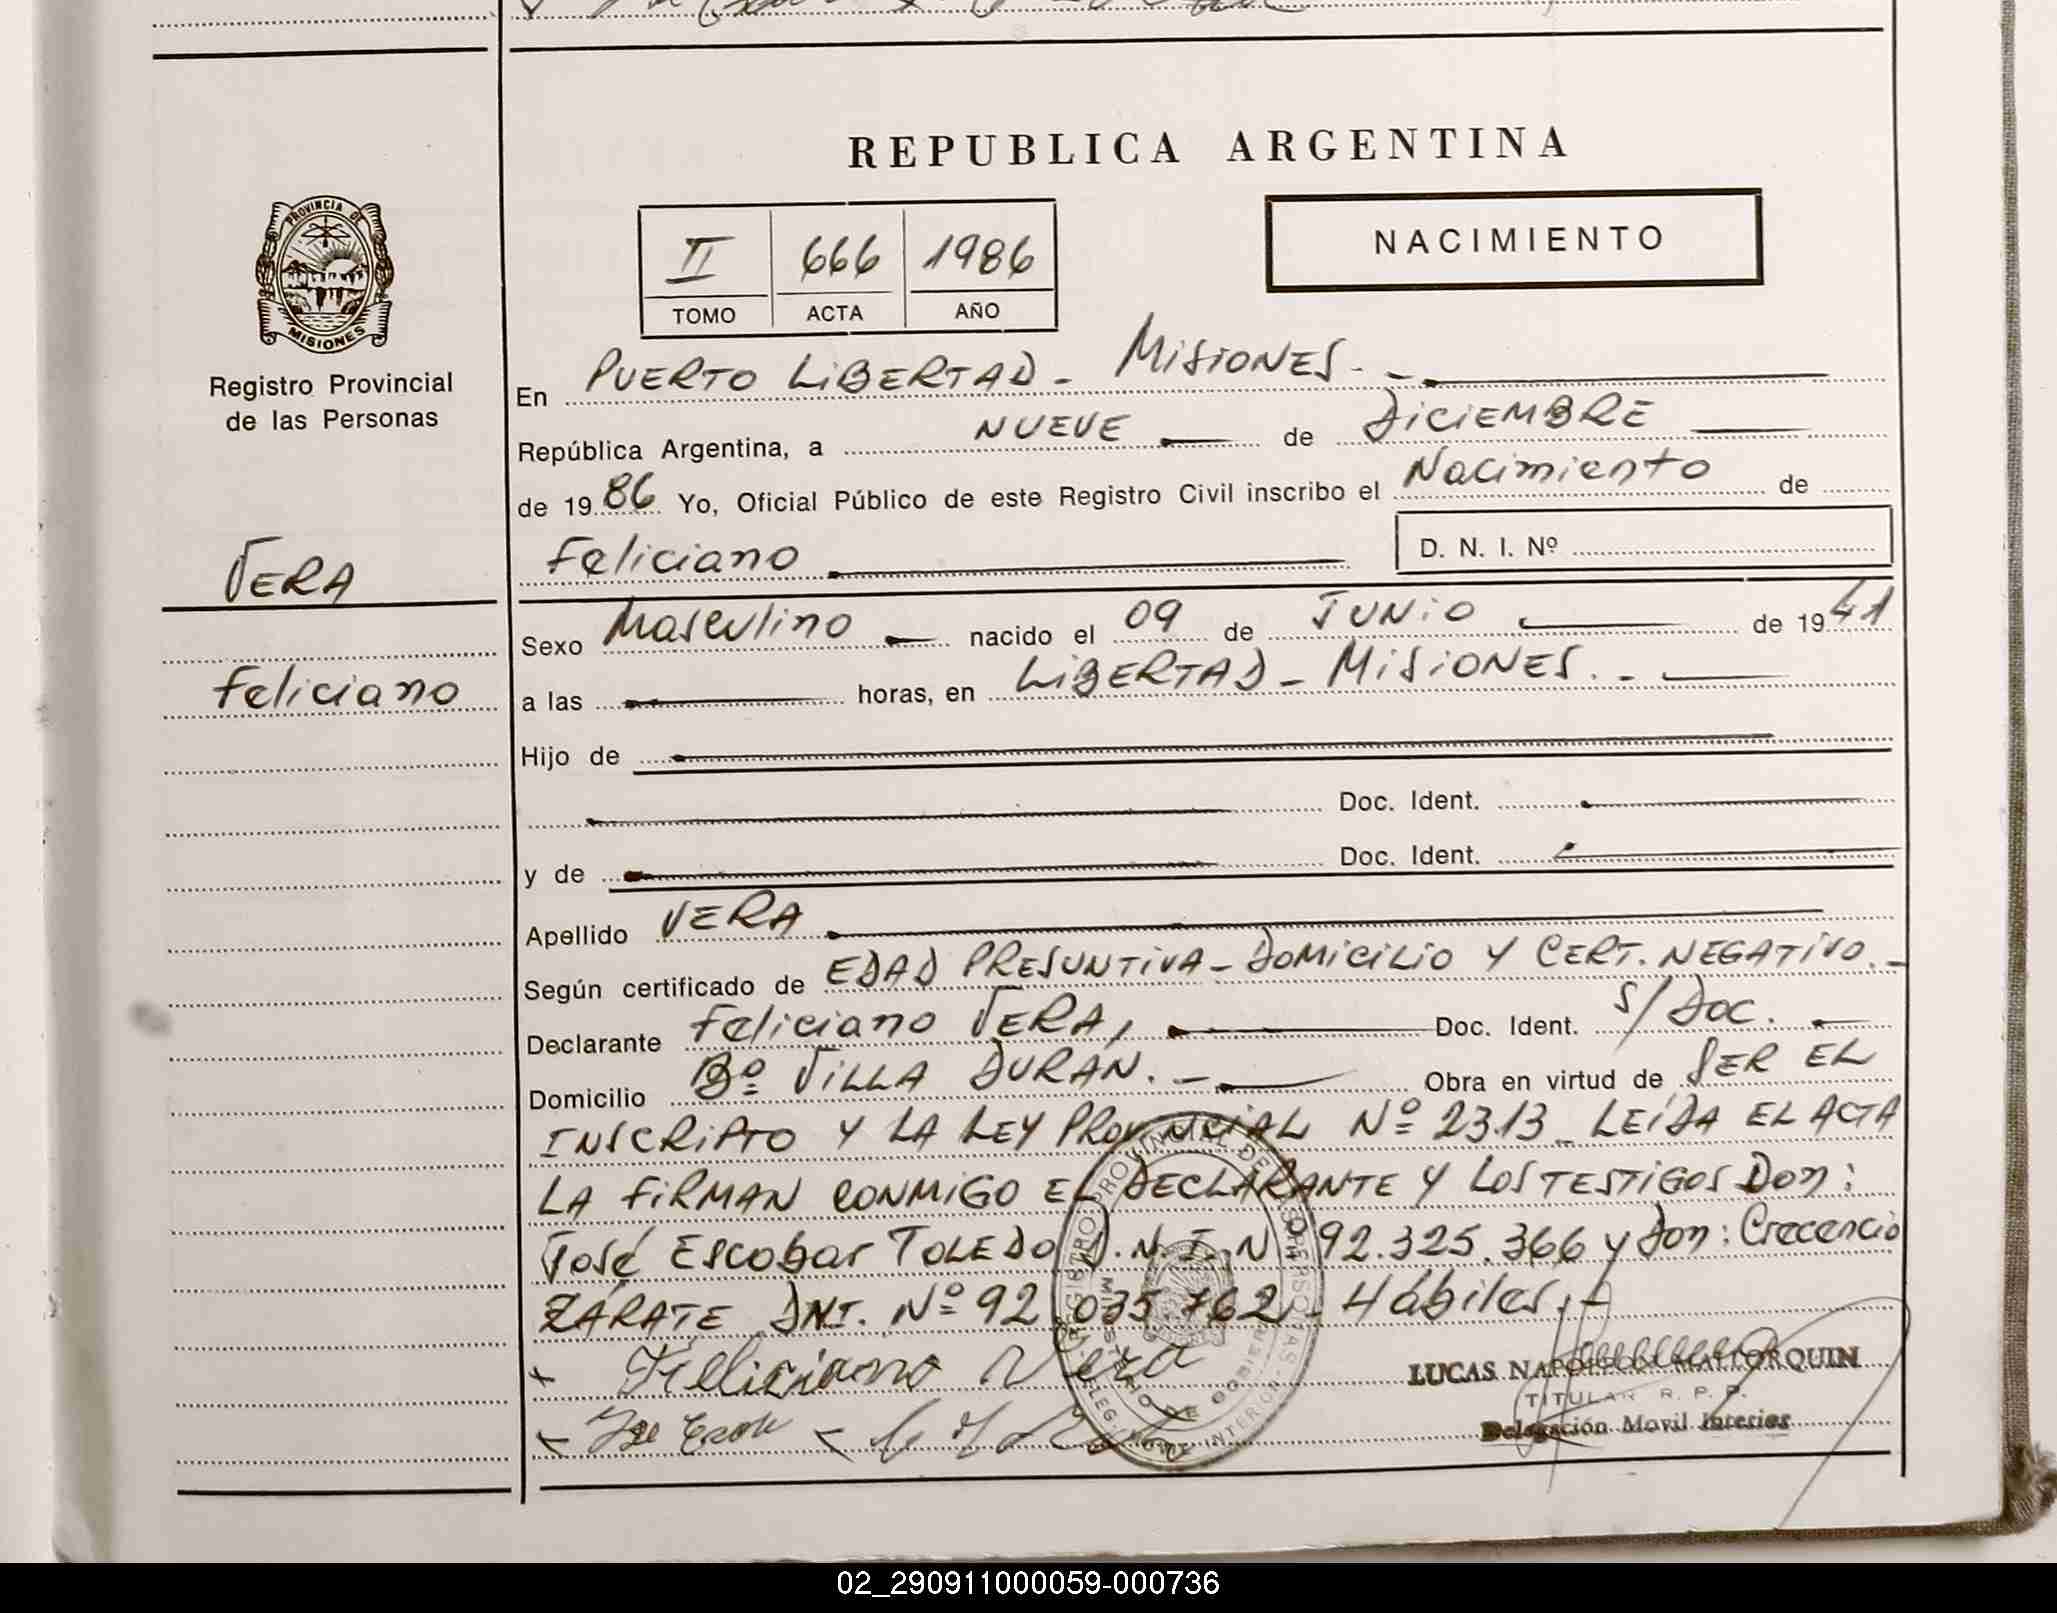 REPUBLICA ARGENTINA
PROVINCIA DE
MISIONES
Registro Provincial
de las Personas
II 666 1986
TOMO ACTA AÑO
NACIMIENTO
En PUERTO LIBERTAD - MISIONES. -
República Argentina, a NUEVE de DICIEMBRE
de 19 86 Yo, Oficial Público de este Registro Civil inscribo el Nacimiento de
Feliciano D. N. I. Nº
VERA
Feliciano
Sexo Masculino nacido el 09 de JUNIO de 19 41
a las horas, en LIBERTAD - MISIONES. -
Hijo de
Doc. Ident.
y de Doc. Ident.
Apellido VERA
Según certificado de EDAD PRESUNTIVA - DOMICILIO Y CERT. NEGATIVO. -
Declarante Feliciano VERA, Doc. Ident. S/Doc.
Domicilio Bº VILLA DURÁN. - Obra en virtud de SER EL
INSCRIPTO Y LA LEY PROVINCIAL Nº 2313 - LEÍDA EL ACTA
LA FIRMAN CONMIGO EL DECLARANTE Y LOS TESTIGOS Don:
José Escobar TOLEDO D.N.I. Nº 92.325.366 y Don: Crecencio
ZÁRATE DNI. Nº 92.035.762 - Hábiles. -
Feliciano Vera
LUCAS NAPOLEON MALLORQUIN
TITULAR R. P. P.
Delegación Movil Interior
REGISTRO PROVINCIAL DE LAS PERSONAS
MINISTERIO DE GOBIERNO
02_290911000059-000736